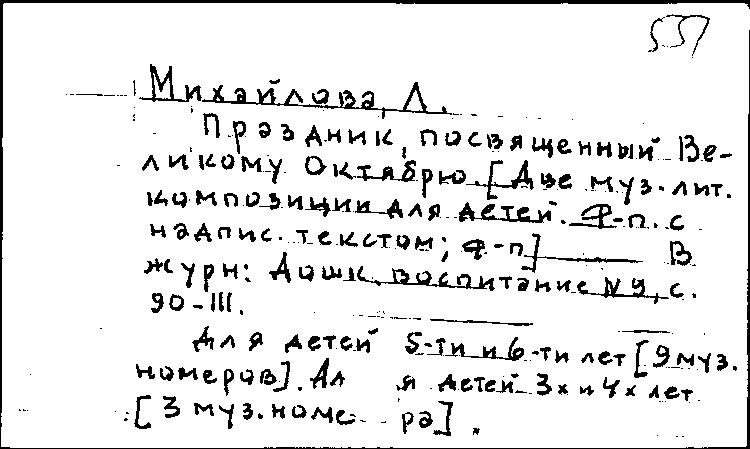 537
Михайлова, Л.
Праздник, посвященный Ве-
ликому Октябрю. [Две муз.-лит.
композиции для детей. Ф-п. с
надпис. текстом; ф-п] —— В
журн: Дошк. воспитание №9, с.
90-111.
Для детей 5-ти и 6-ти лет [9 муз.
номеров]. Для детей 3х и 4х лет
[3 муз. номера].